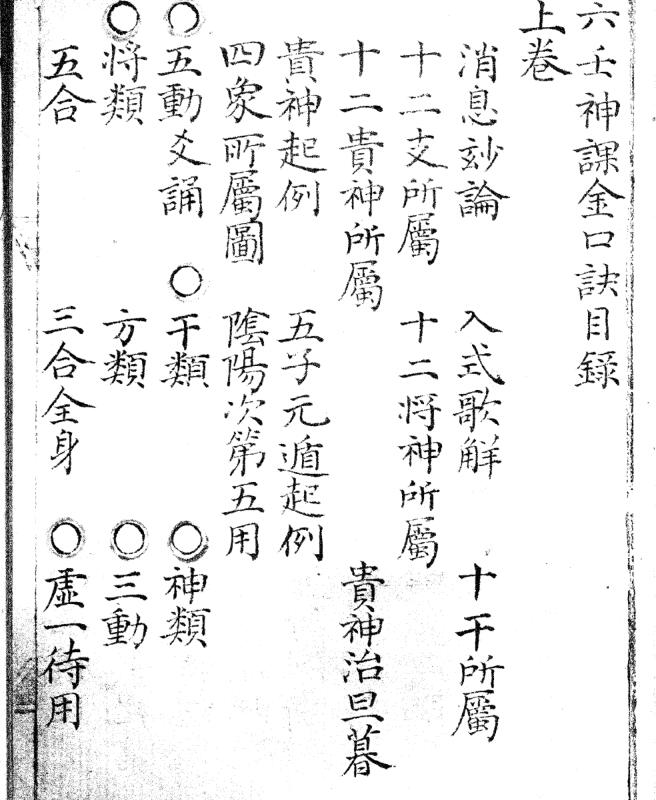 六壬神課金口訣目錄
上卷
消息玅論　入式歌觧　十干所屬
十二支所屬　十二將神所屬
十二貴神所屬　貴神治旦暮
貴神起例　五子元遁起例
四象所屬圖　陰陽次第五用
○五動爻誦　○干類　○神類
○將類　方類　○三動
五合　三合全身　○虛一待用